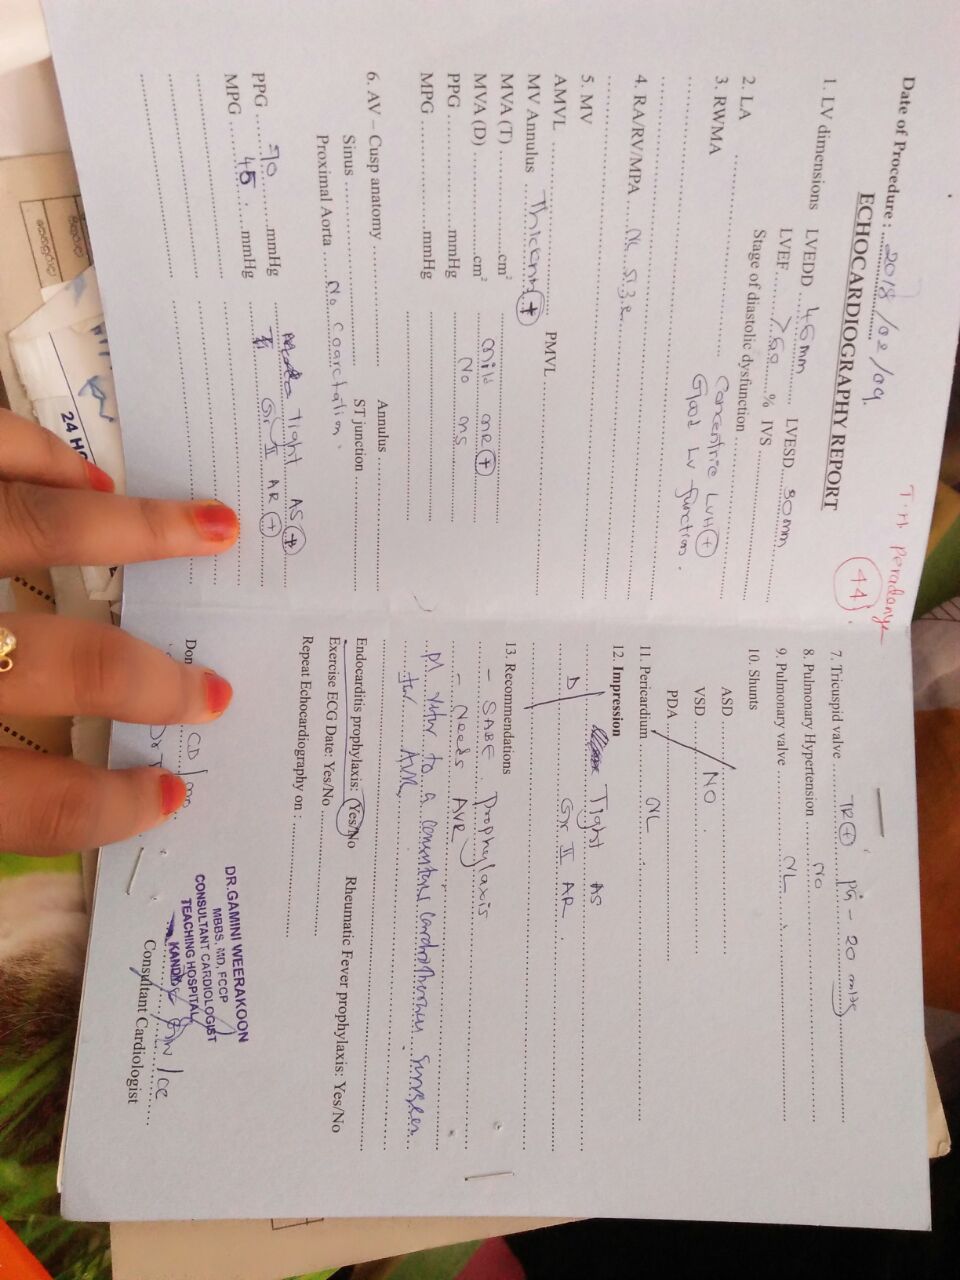 T.H Peradenya
44
Date of Procedure : 2018/02/09.
ECHOCARDIOGRAPHY REPORT
1. LV dimensions LVEDD 46mm LVESD 30mm
LVEF >60 % IVS
Stage of diastolic dysfunction
2. LA
Concentric LVH +
3. RWMA Good LV function.
4. RA/RV/MPA NL size
5. MV
AMVL PMVL
MV Annulus Thicken +
MVA (T) cm²
MVA (D) cm² mild MR +
PPG mmHg No MS
MPG mmHg
6. AV – Cusp anatomy Annulus
Sinus ST junction
Proximal Aorta No coarctation.
PPG 70 mmHg Tight AS +
MPG 45 mmHg Gr II AR +
7. Tricuspid valve TR + PG - 20 mmHg
8. Pulmonary Hypertension No
9. Pulmonary valve NL
10. Shunts
ASD
VSD NO
PDA
11. Pericardium NL
12. Impression
Tight AS
D Gr II AR.
13. Recommendations
- SABE. Prophylaxis
- Needs AVR
Pl refer to a consultant cardiothoracic surgeon
for AVR.
Endocarditis prophylaxis: Yes/No Rheumatic Fever prophylaxis: Yes/No
Exercise ECG Date: Yes/No
Repeat Echocardiography on :
Don
CD
Dr
DR.GAMINI WEERAKOON
MBBS, MD, FCCP
CONSULTANT CARDIOLOGIST
TEACHING HOSPITAL
KANDY
Consultant Cardiologist
24 HO